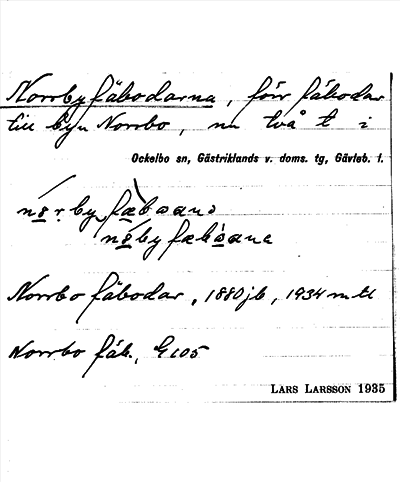 Norrby fäbodarna, förr fäbodar
till byn Norrbo, nu två t i
Ockelbo sn, Gästriklands v. doms. tg, Gävleb. l.
Norrbo fäbodar, 1880 jb, 1934 mtl
Norrbo fäb., G 105
LARS LARSSON 1935